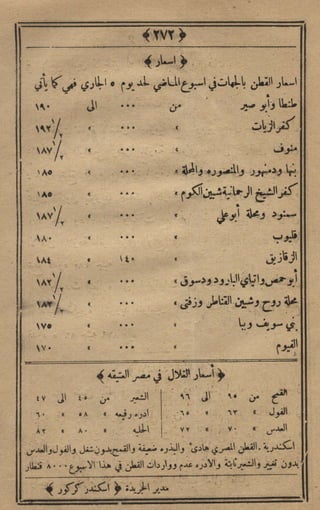 ﴿ ٢٧٢ ﴾
﴿ اسعار ﴾
اسعار القطن بالجهات في اسبوع الماضي لحد يوم ٥ الجاري فهي كما يأتي
طنطا وأبو صير من ٠٠٠ الى ١٩٠
كفر الزيات » ٠٠٠ » ١٩٢١/٢
منوف » ٠٠٠ » ١٨٧١/٢
بنها ودمنهور والمنصوره والمحلة » ٠٠٠ » ١٨٥
كفر الشيخ الرحمانية شبين الكوم » ٠٠٠ » ١٨٥
سمنود ومحلة أبو علي » ٠٠٠ » ١٨٧١/٢
قليوب » ٠٠٠ » ١٨٠
الزقازيق » ١٤٠ » ١٨٤
أبو حمص واتياي البارود ودسوق » ٠٠٠ » ١٨٢١/٢
محلة روح وشبين القناطر وزفتى » ٠٠٠ » ١٨٢١/٢
بني سويف وببا » ٠٠٠ » ١٧٥
الفيوم » ٠٠٠ » ١٧٠
﴿ أسعار الغلال في مصر العتيقه ﴾
القمح من ٩٥ الى ٩٦ الشعير من ٤٥ الى ٤٧
الفول » ٦٣ » ٦٥ ادره رفيعه » ٥٨ » ٦٠
العدس » ٧٠ » ٧٢ الحلبه » ٨٠ » ٨٢
اسكندرية . القطن المصري هادئ والبذره ضعيفة والقمح بدون شغل والفول والعدس
بدون تغيير والشعير ثابتة والادره عدم وواردات القطن في هذا الاسبوع ٨٠٠٠ قنطار
مدير الجريدة ﴿ اسكندر كركور ﴾